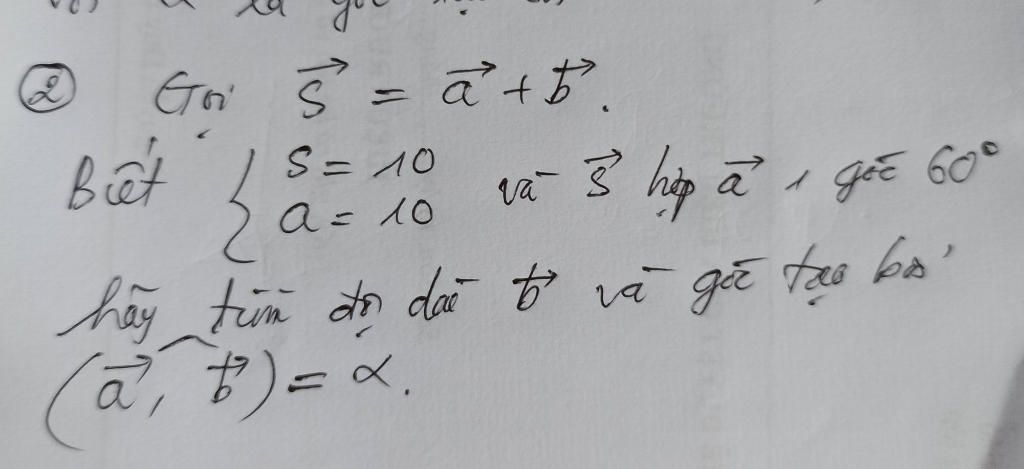 ② Gọi s⃗ = a⃗ + b⃗.
Biết { s = 10
a = 10 và s⃗ hợp a⃗ 1 góc 60°
hãy tìm độ dài b⃗ và góc tạo bởi
(a⃗, b⃗) = α.